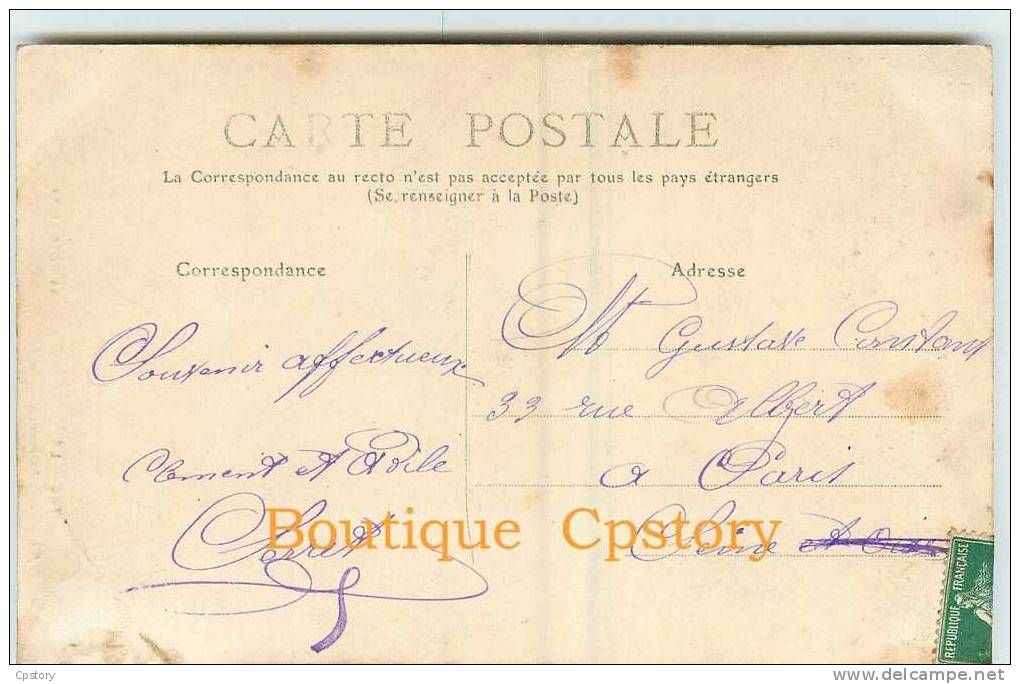 CARTE POSTALE
La Correspondance au recto n'est pas acceptée par tous les pays étrangers
(Se renseigner à la Poste)
Correspondance
Souvenir affectueux
Clement et
Boutique Cpstory
Adresse
Mr Gustave Constant
33 rue Albert
a Paris
Seine et Oise
REPUBLIQUE FRANÇAISE
Cpstory
www.delcampe.net